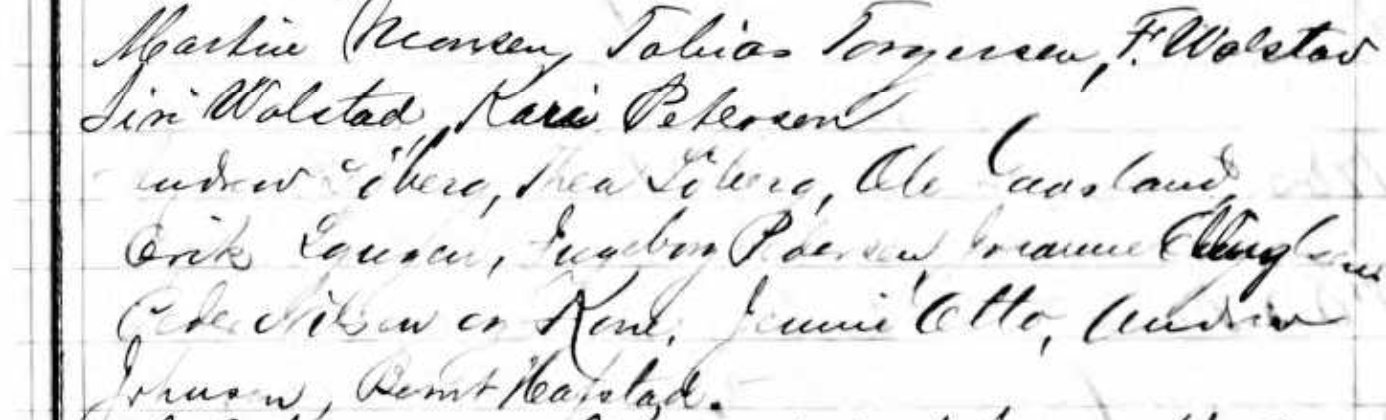 Martin Monsen, Tobias Torgersen, F. Wolstad
Siri Wolstad, Kari Petersen
Andrew Löberg, Thea Löberg, Ole Aasland,
Erik Laugen, Ingeborg Pedersen, Ellingsen
Peder Nilsen og Kone, Jennie Otto, Andrew
Johnson, Bernt Hafstad.